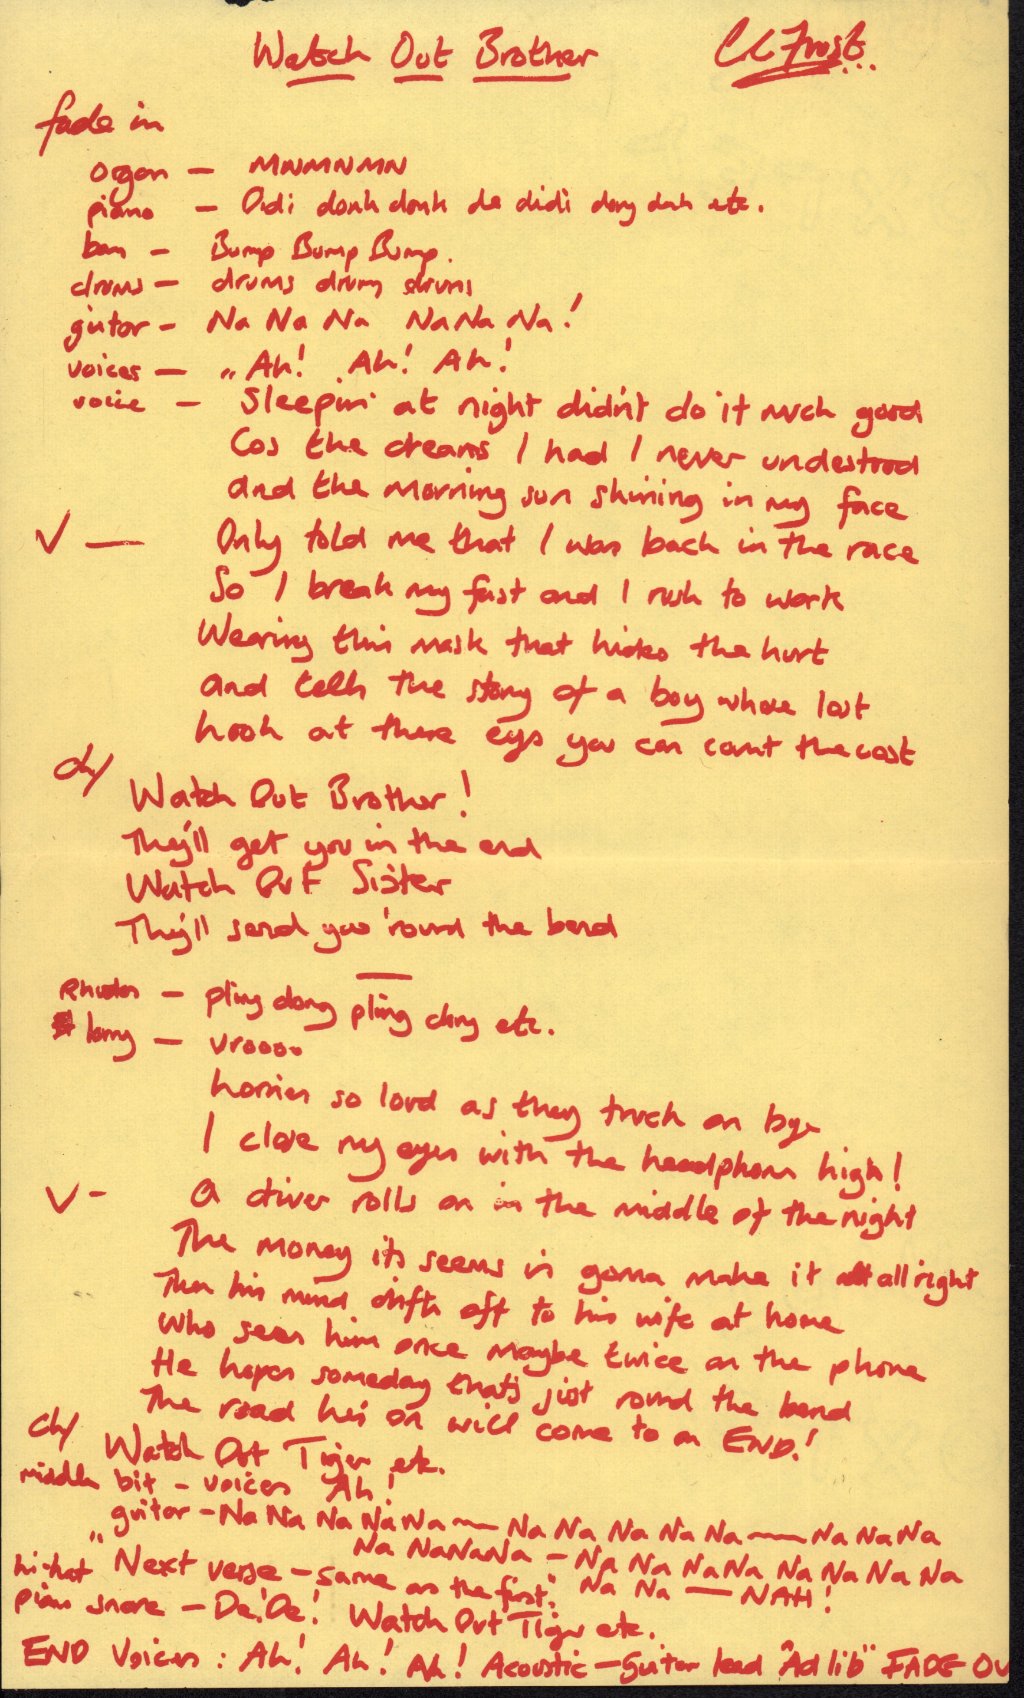 Watch Out Brother CC Frost...
fade in
organ — MNMNMN
piano — Didi donk donk de didi dong dah etc.
bass — Bump Bump Bump.
drums — drums drum drums
guitor — Na Na Na Na Na Na!
voices — „ Ah! Ah! Ah!
voice — Sleepin' at night didn't do it much good
Cos the dreams I had I never understood
and the morning sun shining in my face
V — Only told me that I was back in the race
So I break my fast and I rush to work
Wearing this mask that hides the hurt
and tells the story of a boy whose lost
Look at these eyes you can count the cost
ch/
Watch Out Brother!
They'll get you in the end
Watch Out Sister
They'll send you 'round the bend
Rhodes — pling dong pling dong etc.
lorry — vroooo
Lorries so loud as they truck on bye
I close my eyes with the headphones high!
V - A driver rolls on in the middle of the night
The money its seems is gonna make it all right
Then his mind drifts off to his wife at home
who sees him once maybe twice on the phone
He hopes someday that's just round the bend
The road he's on will come to an END!
ch/
Watch Out Tiger etc.
middle bit - voices Ah!
„ guitor - Na Na Na Na Na — Na Na Na Na Na — Na Na Na
Na NaNaNa — Na Na NaNa Na Na Na Na
Na Na — NAH!
hi-hat Next verse - same as the first.
piano snare - De! De! Watch Out Tiger etc.
END Voices : Ah! Ah! Ah! Acoustic — guitor lead "Ad lib" FADE OU